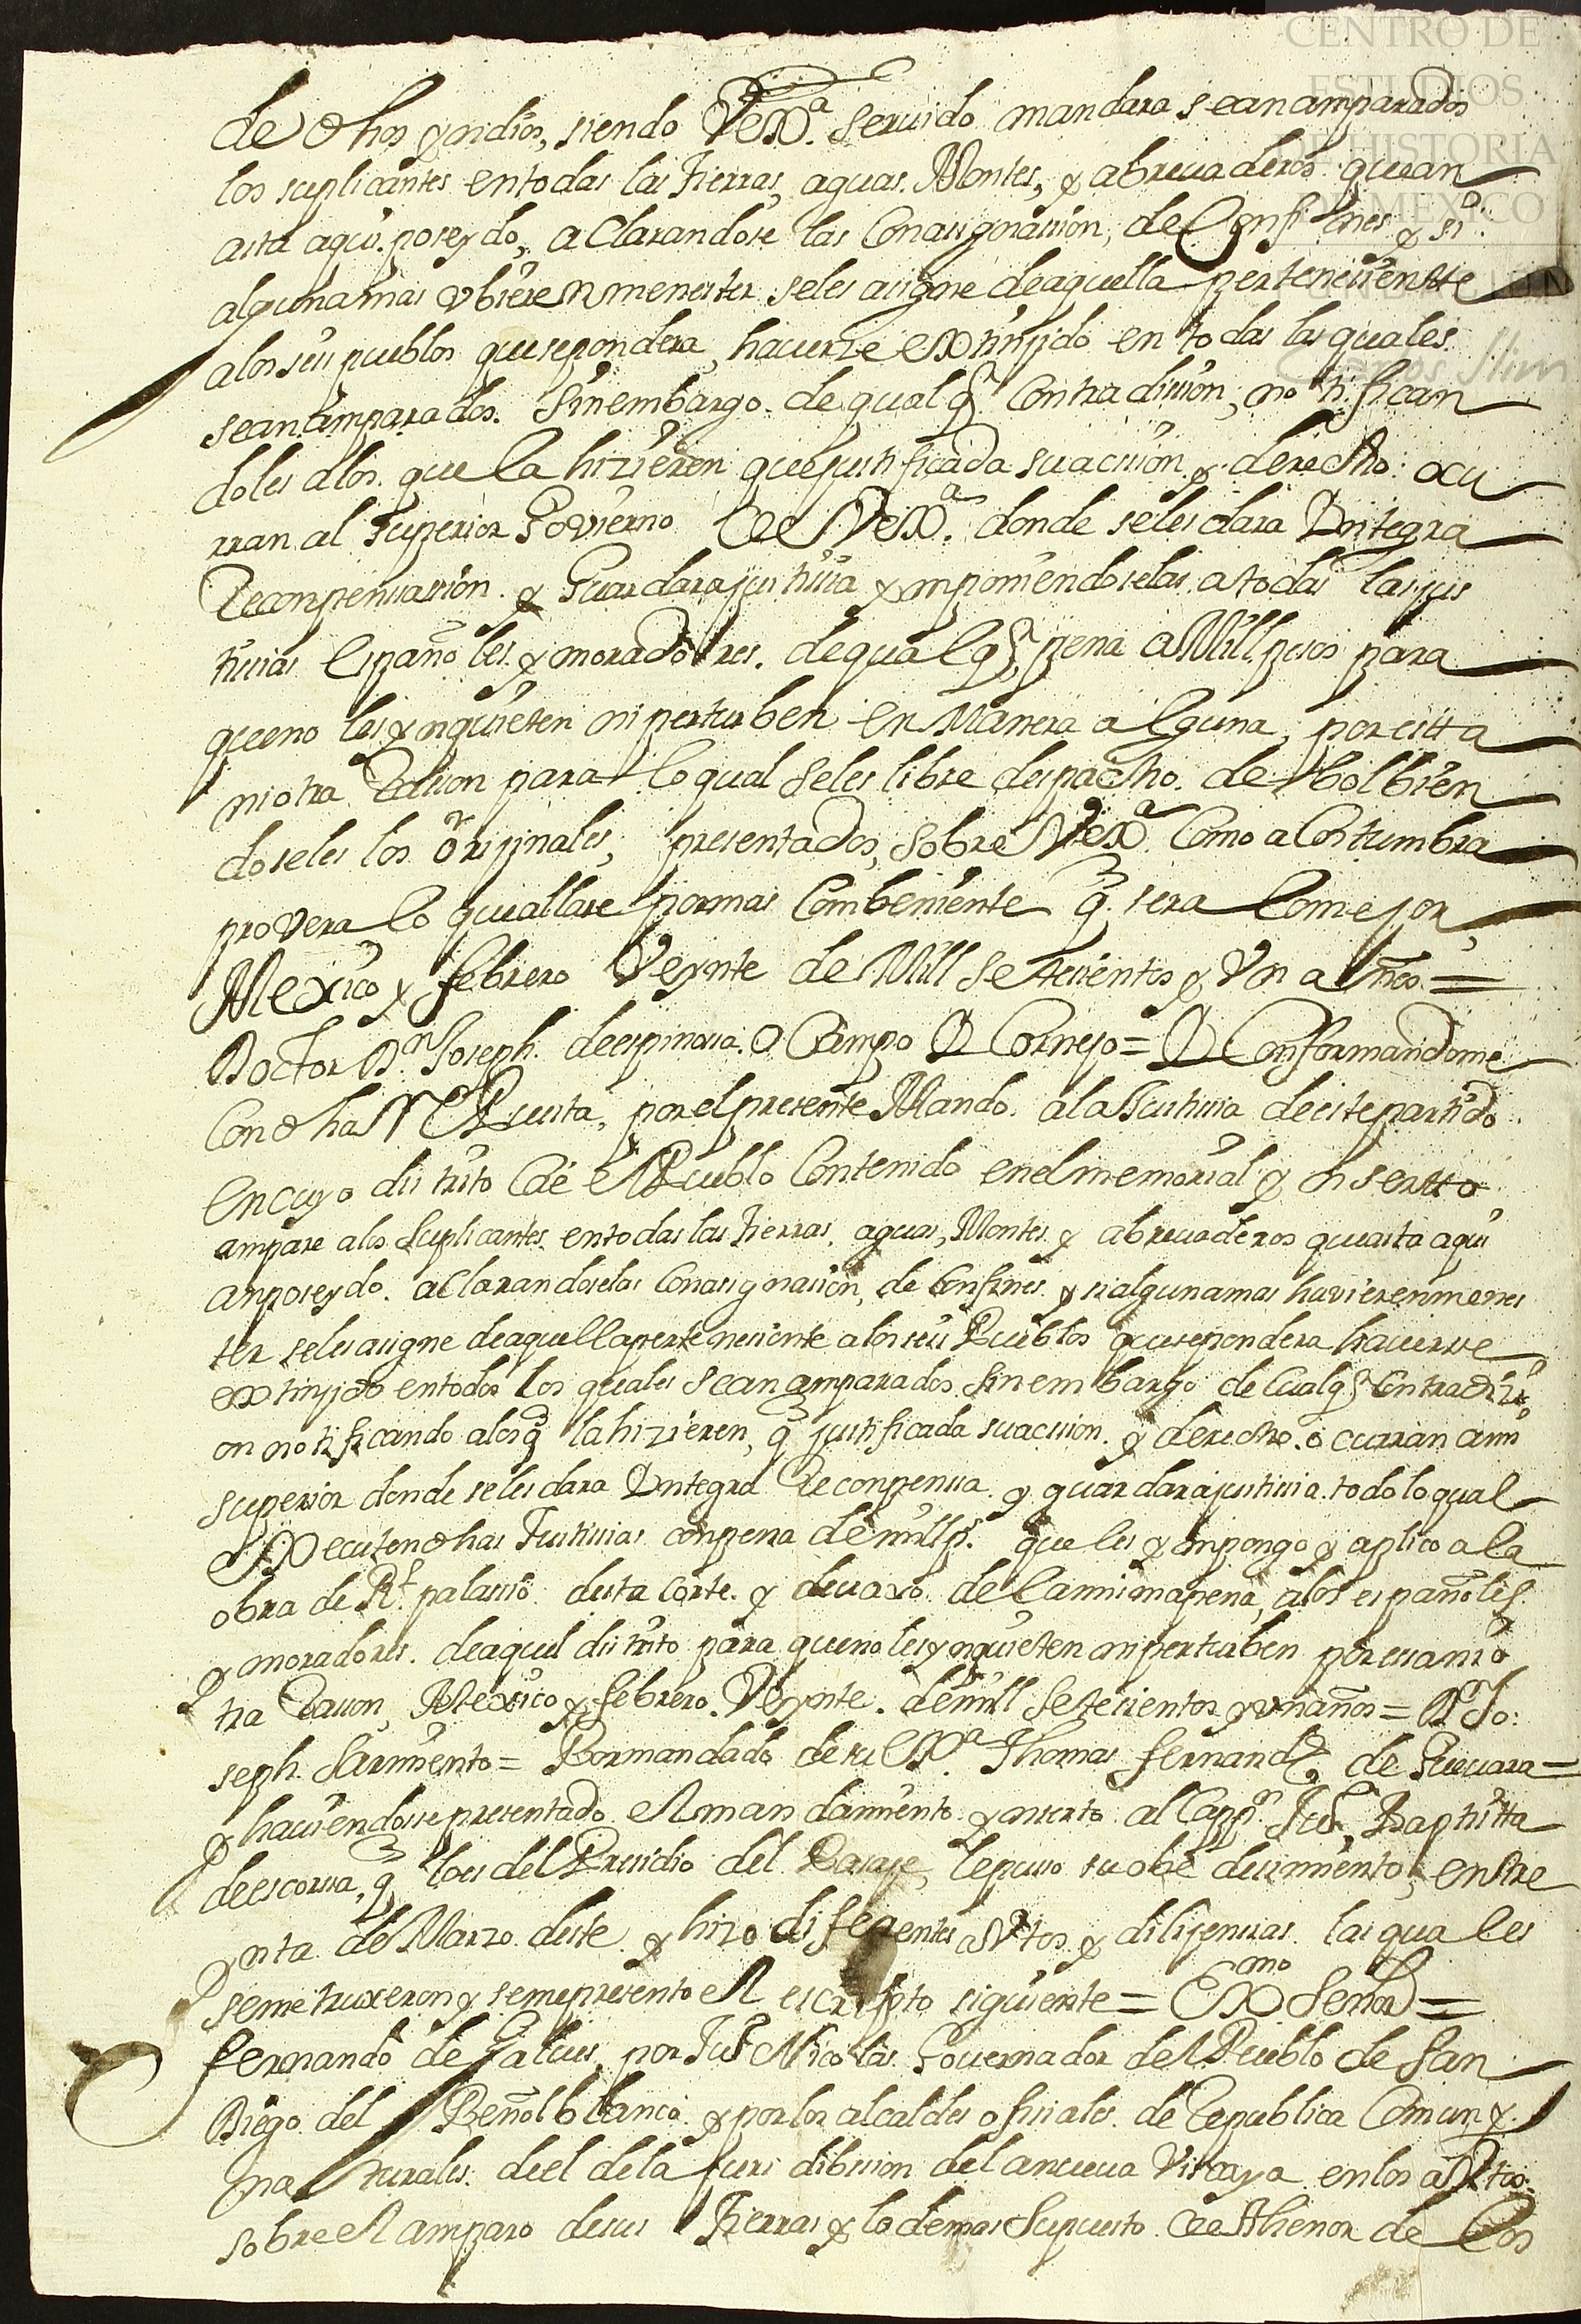 CENTRO DE
ESTUDIOS
DE HISTORIA
DE MEXICO
FUNDACIÓN
Carlos Slim
de dhos yndios, siendo Vexª. seruido mandara sean amparados
los suplicantes en todas las tierras, aguas. Montes, y abreuaderos que an
asta aqui. poseydo, aclarandose las Con asignassion, de Confines y si
alguna mas vbieren menester seles asigne de aquella perteneciente
a los seis pueblos que se pondera, hauerse extinjido en todas las quales
sean amparados. sin embargo. de qualqª Contradission, notifican
doles a los. que la hizieren que justificada su acsion y derecho: ocu
rran al superior Govierno de Vexª. donde seles dara Yntegra
Recompensassion. y Guardara justisia ymponiendoselas a todas las jus
tisias Españoles. y moradores. de qualqª pena a Mill pesos para
que no les ynquieten ni perturben en Manera alguna, por esta
ni otra Rason para lo qual seles libre despacho. debolbien
doseles los originales, presentados, sobre Vexª. Como acostumbra
provera lo que allare por mas Combeniente q. sera lo mejor,
Mexico y febrero Veynte de Mill setesientos y Vn años =
Doctor Dn. Joseph. de espinosa. Ocampo Y Cornejo = Y Conformandome
Con dha Respuesta, por el presente Mando. a la Justisia de este partido
en cuyo distrito cae el Pueblo Contenido en el memorial y inserto
ampare a los suplicantes. en todas las tierras, aguas, Montes. y abreuaderos que asta aqui
an poseydo. aclarandoselas Con asignasion, de Confines. y si alguna mas huvieren menes
ter seles asigne de aquella pertenesiente a los seis Pueblos que se pondera hauerse
extinjido en todos los quales sean amparados sin embargo de Cualqª Contradizi
on notificando a los q̃ la hizieren, q̃ justificada su acsion. y derecho. ocurran a mi
superior donde seles dara Yntegra Recompensa. y guardara justisia. todo lo qual
executen dhas Justisias con pena de mill ps. que les ympongo y aplico a la
obra de Rl. palassio desta Corte. y deuaxo de la misma pena, a los españoles
y moradores. de aquel distrito para que no les ynquieten ni perturben por esa ni o
tra Rason, Mexico y febrero. Veynte. de mill setesientos y vn años = Dn Jo:
seph. Sarmiento = Por mandado de su Exª. Thomas fernandz de Gueuara =
y hauiendosse presentado el mandamiento ynserto al Cappn Jun, Baptista
de escorsa, q̃ lo es del Presidio del Pasaje, le puso su obedesimiento, en tre
ynta de Marzo deste y hizo diferentes autos y dilijensias. las quales
se me truxeron y se me presento el escripto siguiente = Exmo Señor =
fernando de Galues, por Jun Nicolas. Gouernador del Pueblo de San
Diego del Peñol blanco. y por los alcaldes ofisiales. de Republica Comun y.
naturales. de el de la Jurisdission de la nueua Viscaya en los autos:
sobre el amparo de sus tierras y lo demas Supuesto el thenor de los